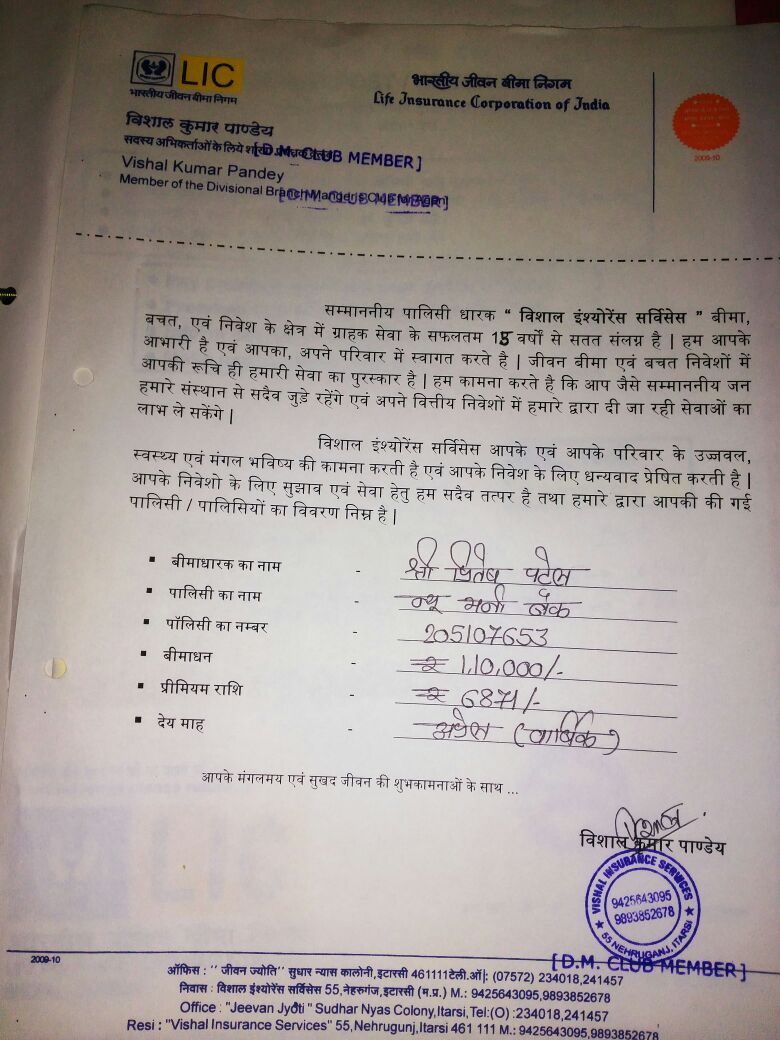 LIC
भारतीय जीवन बीमा निगम
भारतीय जीवन बीमा निगम
Life Insurance Corporation of India
2009-10
विशाल कुमार पाण्डेय
सदस्य अभिकर्ताओं के लिये
[D.M. CLUB MEMBER]
Vishal Kumar Pandey
Member of the Divisional Branch
[D.M. CLUB MEMBER]
सम्माननीय पालिसी धारक “ विशाल इंश्योरेंस सर्विसेस ” बीमा,
बचत, एवं निवेश के क्षेत्र में ग्राहक सेवा के सफलतम 15 वर्षों से सतत संलग्न है | हम आपके
आभारी है एवं आपका, अपने परिवार में स्वागत करते है | जीवन बीमा एवं बचत निवेशों में
आपकी रूचि ही हमारी सेवा का पुरस्कार है | हम कामना करते है कि आप जैसे सम्माननीय जन
हमारे संस्थान से सदैव जुड़े रहेंगे एवं अपने वित्तीय निवेशों में हमारे द्वारा दी जा रही सेवाओं का
लाभ ले सकेंगे |
विशाल इंश्योरेंस सर्विसेस आपके एवं आपके परिवार के उज्जवल,
स्वस्थ्य एवं मंगल भविष्य की कामना करती है एवं आपके निवेश के लिए धन्यवाद प्रेषित करती है |
आपके निवेशो के लिए सुझाव एवं सेवा हेतु हम सदैव तत्पर है तथा हमारे द्वारा आपकी की गई
पालिसी / पालिसियों का विवरण निम्न है |
▪ बीमाधारक का नाम - श्री प्रितेष पटेल
▪ पालिसी का नाम - न्यू मनी बैंक
▪ पॉलिसी का नम्बर - 205107653
▪ बीमाधन - ₹ 1,10,000/-
▪ प्रीमियम राशि - ₹ 6871/-
▪ देय माह - अप्रैल (वार्षिक)
आपके मंगलमय एवं सुखद जीवन की शुभकामनाओं के साथ ...
विशाल कुमार पाण्डेय
VISHAL INSURANCE SERVICES
9425643095
9893852678
55 NEHRUGANJ, ITARSI
[D.M. CLUB MEMBER]
2009-10
ऑफिस : '' जीवन ज्योति'' सुधार न्यास कालोनी,इटारसी 461111टेली.ऑ|: (07572) 234018,241457
निवास : विशाल इंश्योरेंस सर्विसेस 55,नेहरुगंज,इटारसी (म.प्र.) M.: 9425643095,9893852678
Office : "Jeevan Jyoti " Sudhar Nyas Colony,Itarsi,Tel:(O) :234018,241457
Resi : "Vishal Insurance Services" 55,Nehrugunj,Itarsi 461 111 M.: 9425643095,9893852678